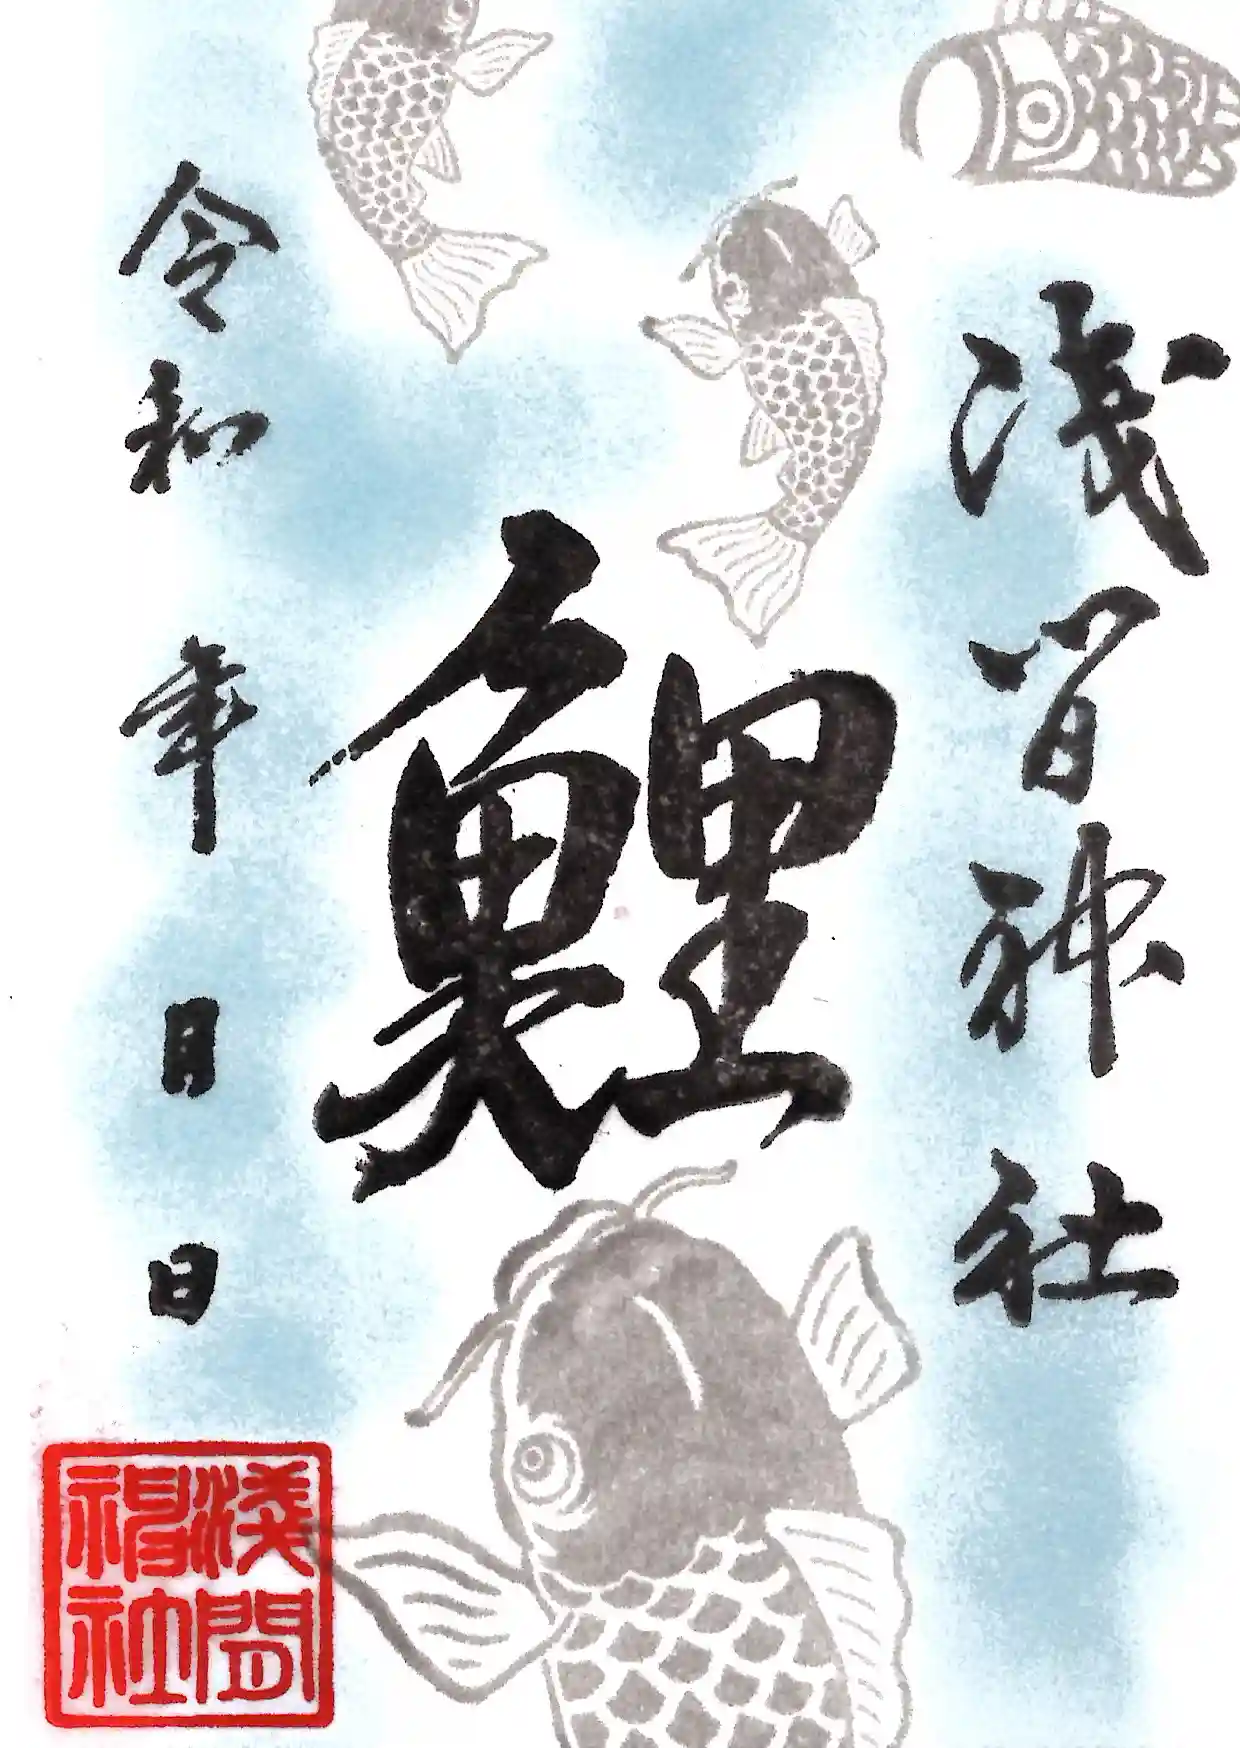 浅間神社
鯉
令和 年 月 日
浅間神社